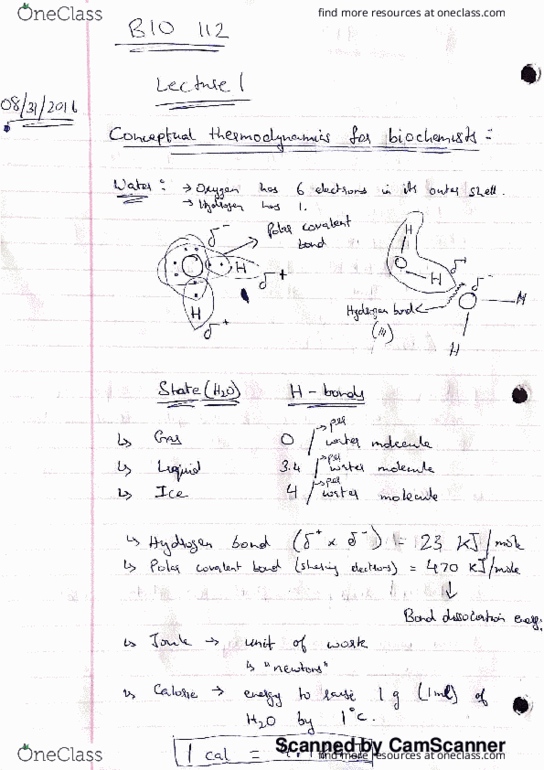 OneClass
find more resources at oneclass.com
BIO 112
Lecture 1
08/31/2016
Conceptual thermodynamics for biochemists:
Water: → Oxygen has 6 electrons in its outer shell.
→ Hydrogen has 1.
δ⁻ Polar covalent bond
H
δ⁺
H
δ⁺
H
O H δ⁺
δ⁻
O H
Hydrogen bond
(///)
H
State (H2O) H-bonds
↳ Gas 0 / per water molecule
↳ Liquid 3.4 / per water molecule
↳ Ice 4 / per water molecule
↳ Hydrogen bond (δ⁺ x δ⁻) = 23 KJ/mole
↳ Polar covalent bond (sharing electrons) = 470 KJ/mole
↓
Bond dissociation energy
↳ Joule → unit of work
↳ "newtons"
↳ Calorie → energy to raise 1 g (1ml) of
H2O by 1°C.
1 cal =
Scanned by CamScanner
OneClass
find more resources at oneclass.com